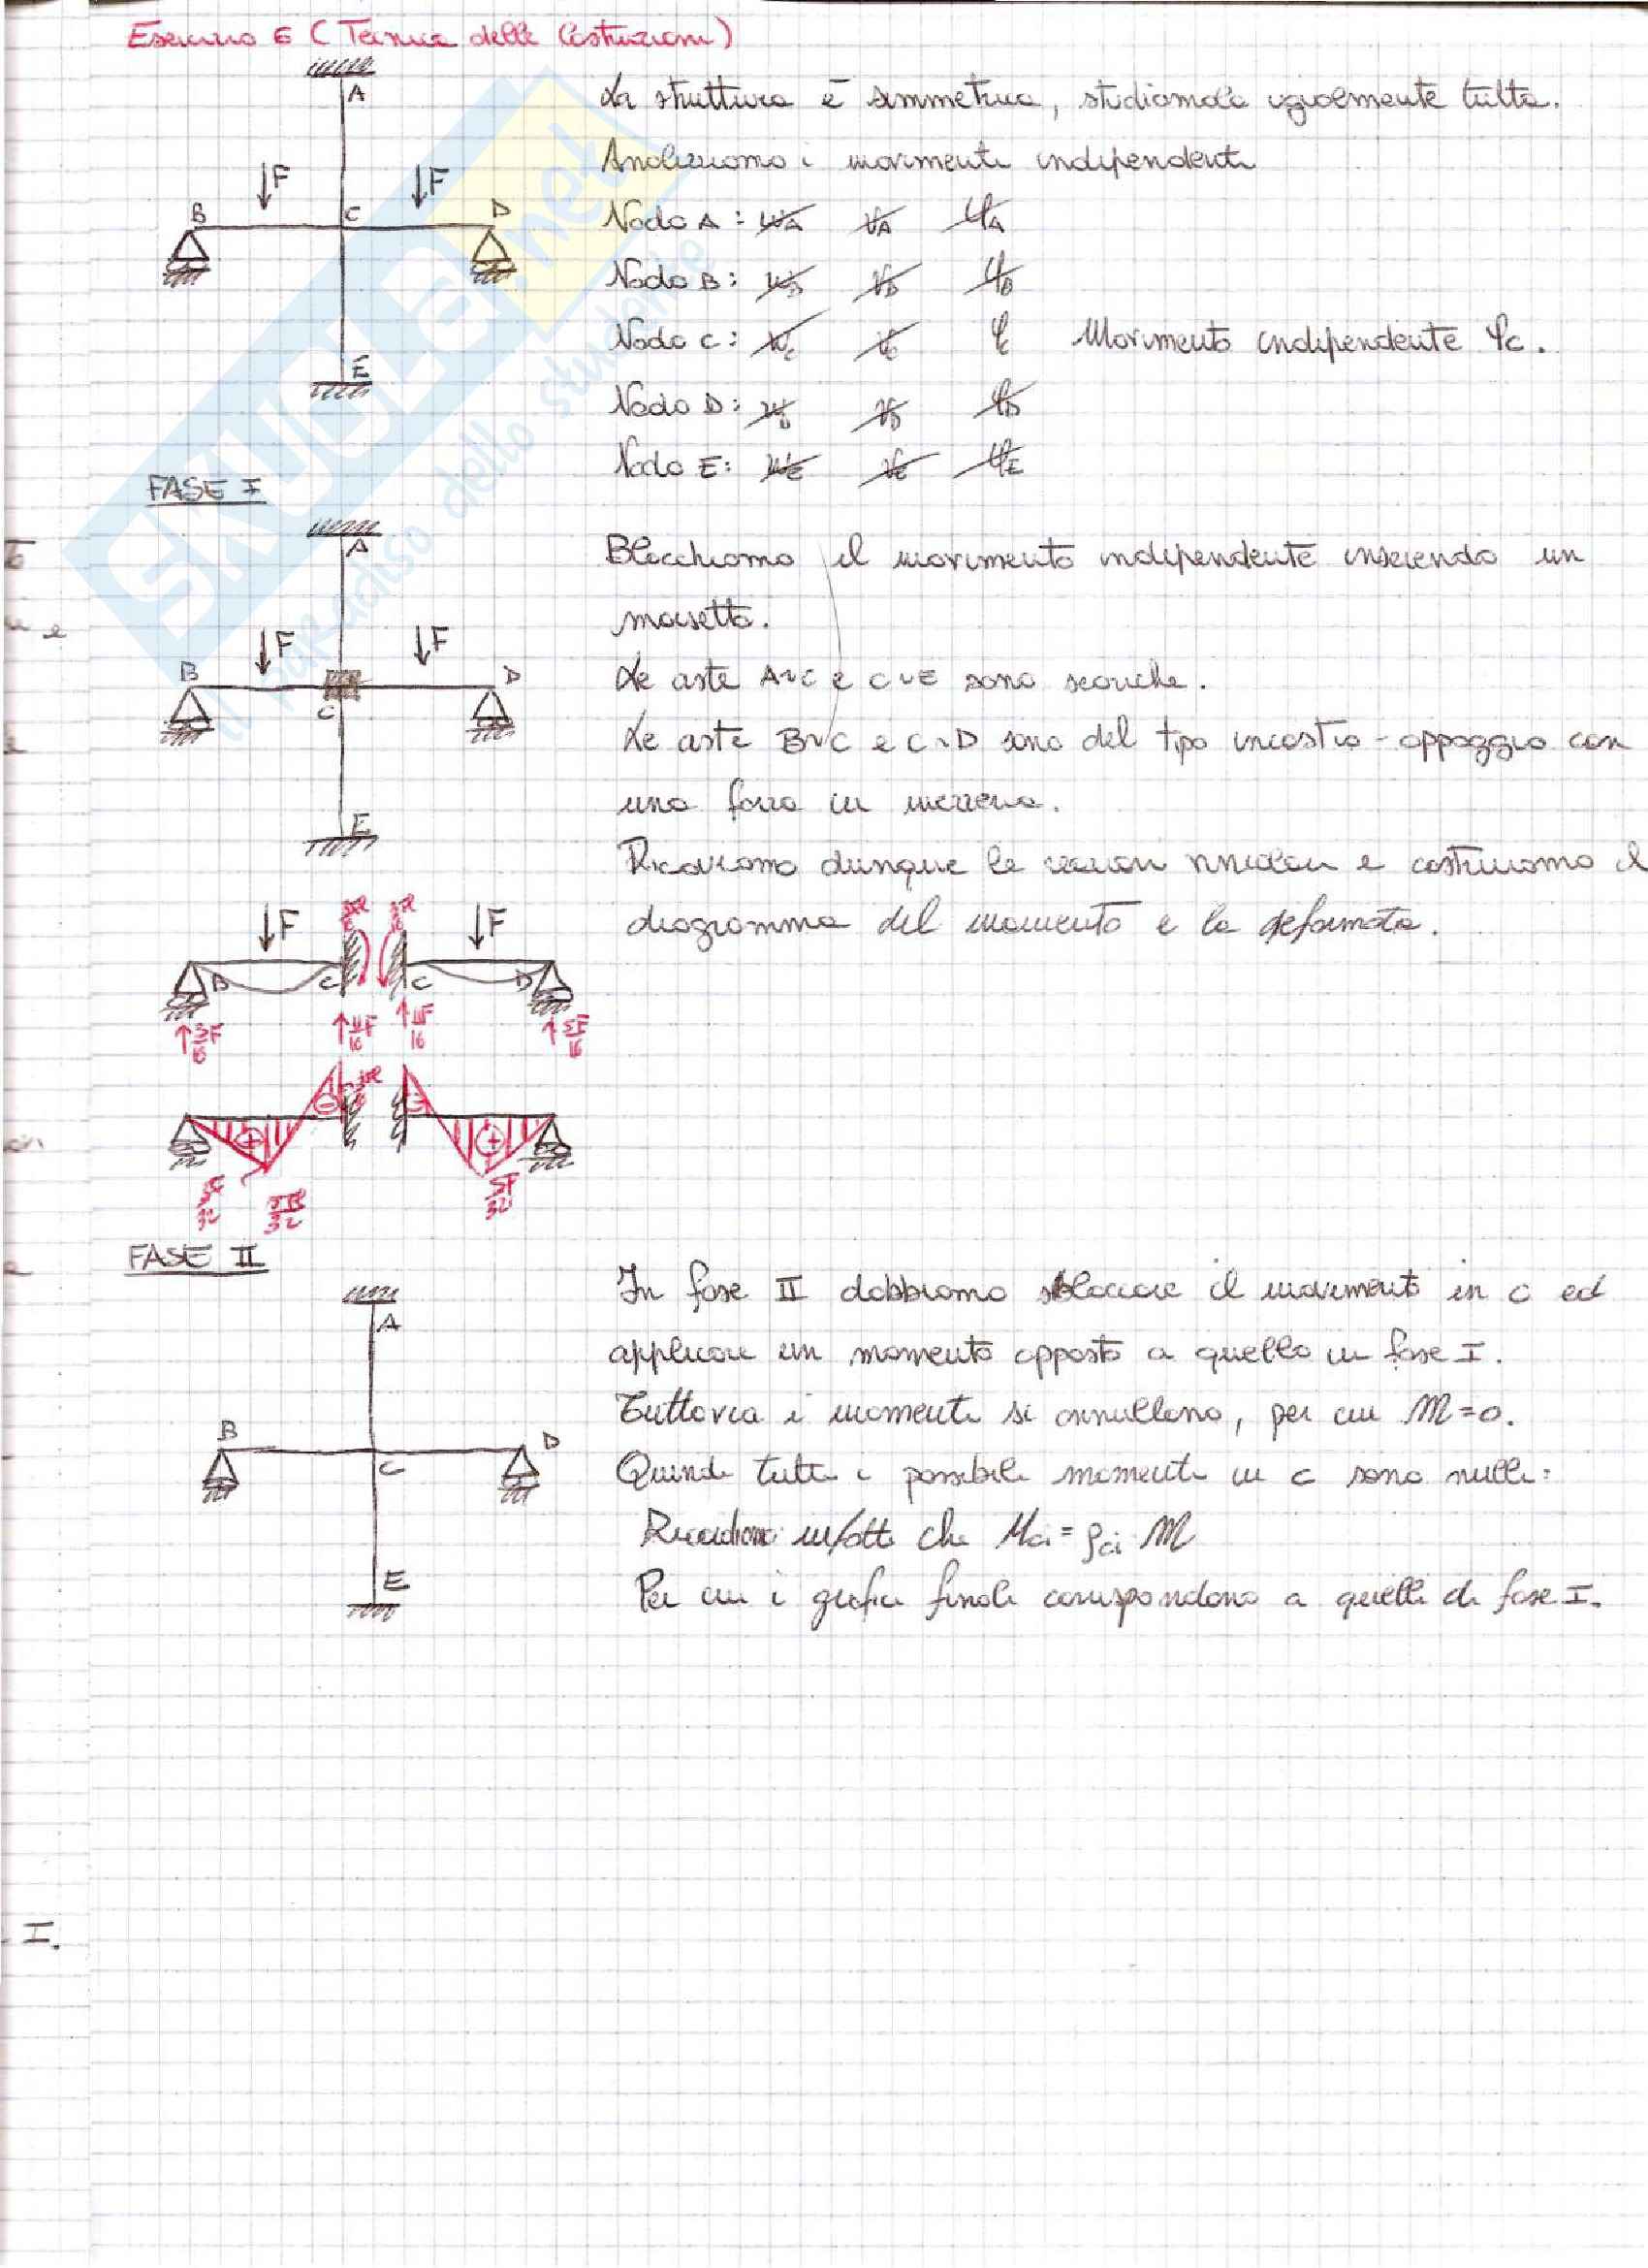 Esercizio 6 (Tecnica delle Costruzioni)
A
La struttura è simmetrica, studiamola ugualmente tutta.
Analizziamo i movimenti indipendenti
F F
B C D
Nodo A: wA vA φA
Nodo B: wB vB φB
Nodo C: wC vC φC Movimento indipendente φC.
E
Nodo D: wD vD φD
Nodo E: wE vE φE
SKUOLA.net
il paradiso dello studente
FASE I
A
Blocchiamo il movimento indipendente inserendo un
morsetto.
F F
B C D
Le aste A~C e C~E sono scariche.
Le aste B~C e C~D sono del tipo incastro-appoggio con
una forza in mezzeria.
E
Ricaviamo dunque le reazioni vincolari e costruiamo il
diagramma del momento e la deformata.
F F
B C C D
11F/16 11F/16 5F/16
+ - +
5F/32
FASE II
A
In fase II dobbiamo sbloccare il movimento in C ed
applicare un momento opposto a quello in fase I.
Tuttavia i momenti si annullano, per cui M=0.
B C D
Quindi tutti i possibili momenti in C sono nulli:
Ricordiamo infatti che Mci = ρci M
E
Per cui i grafici finali corrispondono a quelli di fase I.
I.